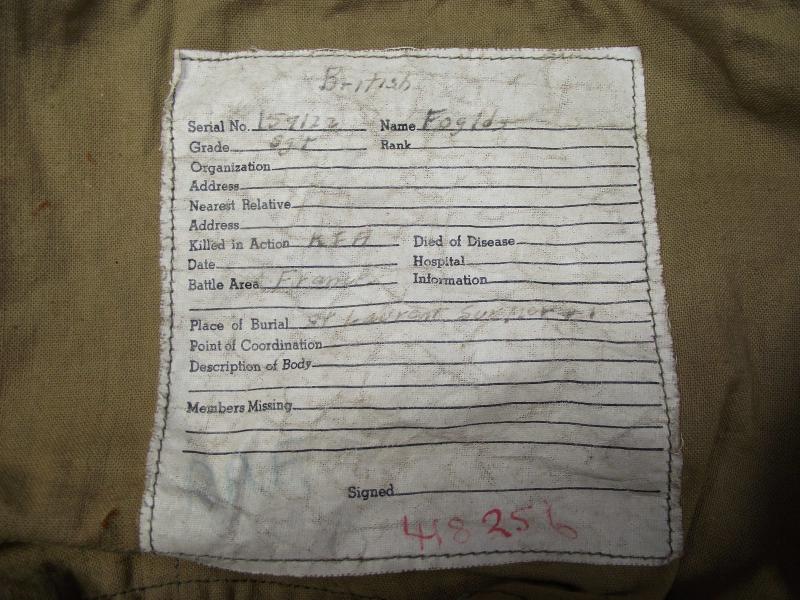 British
Serial No. 159122 Name
Grade Sgt Rank
Organization
Address
Nearest Relative
Address
Killed in Action KIA Died of Disease
Date Hospital
Battle Area France Information
Place of Burial St Laurent Sur Mer #1
Point of Coordination
Description of Body
Members Missing
Signed
418256